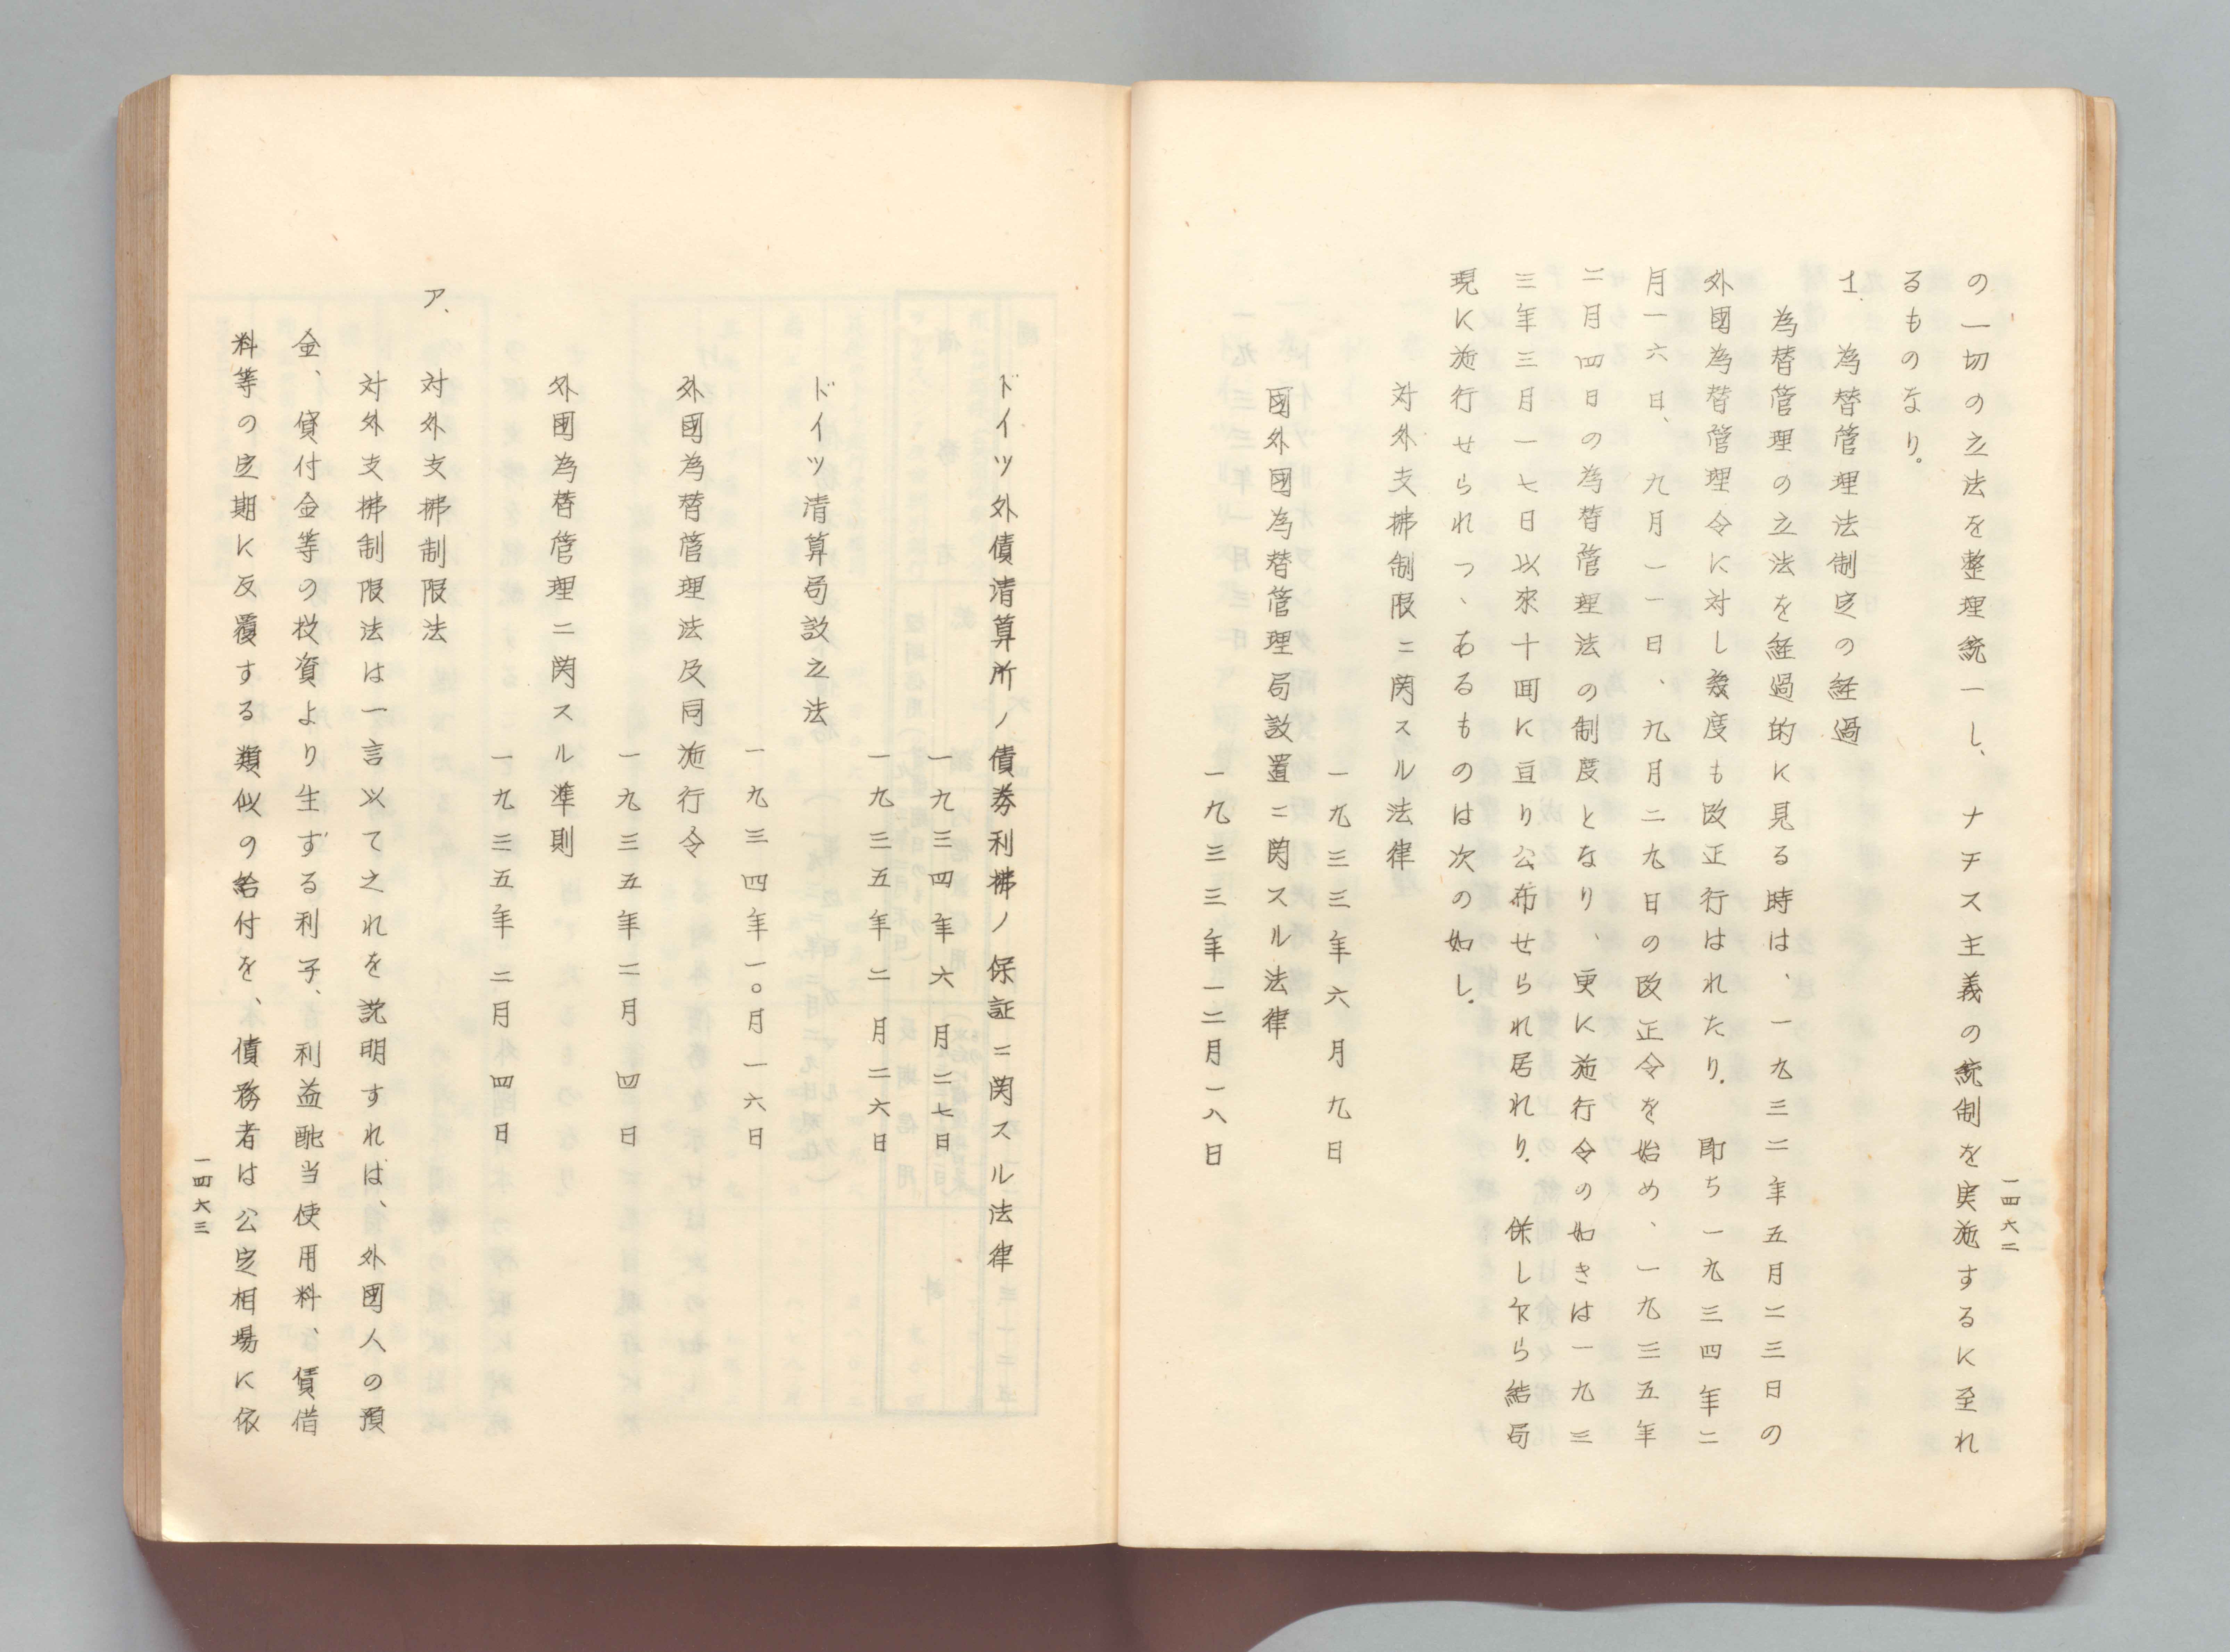 の一切の立法を整理統一し、ナチス主義の統制を実施するに至れ
るものなり。
1. 為替管理法制定の経過
為替管理の立法を経過的に見る時は、一九三二年五月二三日の
外國為替管理令に対し幾度も改正行はれたり。即ち一九三四年二
月一六日、九月一一日、九月二九日の改正令を始め、一九三五年
二月四日の為替管理法の制度となり、更に施行令の如きは一九三
三年三月一七日以來十囬に亘り公布せられ居れり。併し乍ら結局
現に施行せられつゝあるものは次の如し。
対外支拂制限ニ関スル法律
一九三三年六月九日
國外國為替管理局設置ニ関スル法律
一九三三年一二月一八日
一四六二
ドイツ外債清算所ノ債券利拂ノ保証ニ関スル法律
一九三四年六月二七日
一九三五年二月二六日
ドイツ清算局設立法
一九三四年一〇月一六日
外國為替管理法及同施行令
一九三五年二月四日
外國為替管理ニ関スル準則
一九三五年二月四日
ア、対外支拂制限法
対外支拂制限法は一言以て之れを説明すれば、外國人の預
金、貸付金等の投資より生ずる利子、利益配当使用料、賃借
料等の定期に反覆する類似の給付を、債務者は公定相場に依
一四六三